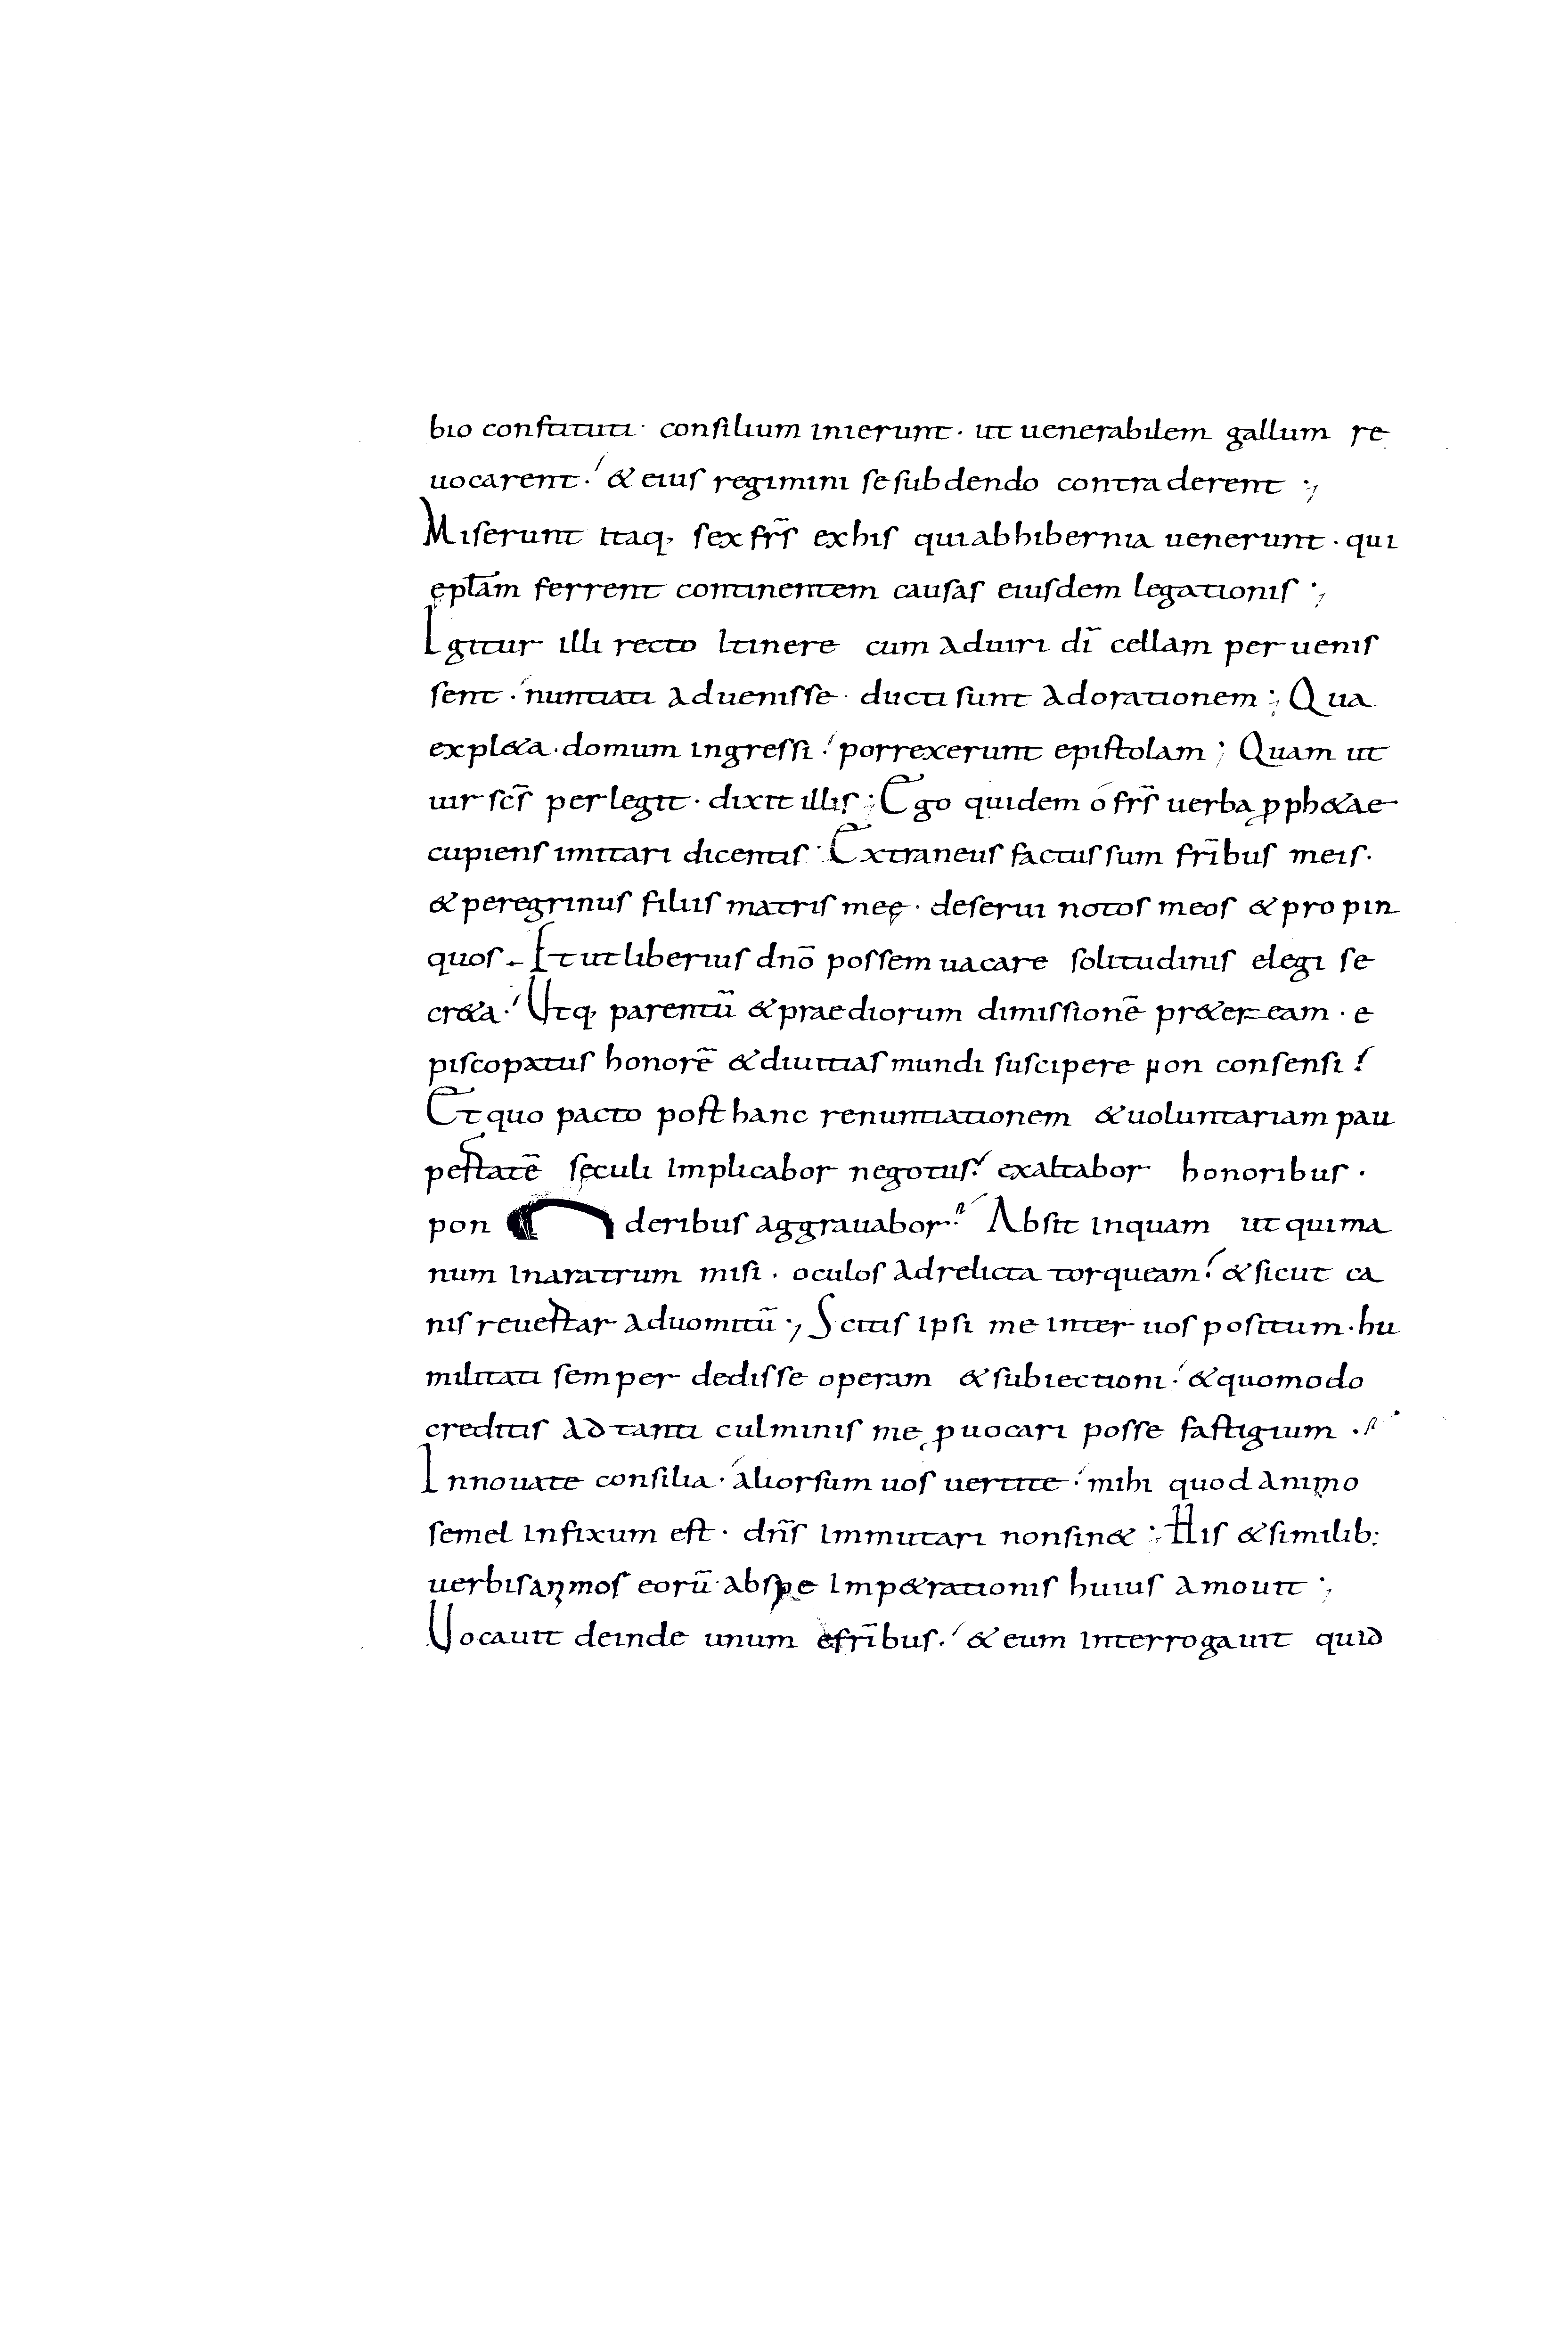 bio constituti · consilium inierunt · ut uenerabilem gallum re
uocarent · & eius regimini se subdendo contraderent ;
Miserunt itaq; sex fr̄s ex his qui ab hibernia uenerunt · qui
ep̄lam ferrent continentem causas eiusdem legationis ;
Igitur illi recto itinere cum ad uiri dī cellam peruenis
sent · nuntiati aduenisse · ducti sunt ad orationem ; Qua
expl&a · domum ingressi · porrexerunt epistolam ; Quam ut
uir sc̄s perlegit · dixit illis ; Ego quidem ó fr̄s uerba ꝓph&ae
cupiens imitari dicentis · Extraneus factus sum fr̄ibus meis ·
& peregrinus filiis matris meę · deserui notos meos & propin
quos · Et ut liberius dn̄o possem uacare solitudinis elegi se
cr&a · Utq; parentū & praediorum dimissionē pr&eream · e
piscopatus honorē & diuitias mundi suscipere non consensi ·
Et quo pacto post hanc renuntiationem & uoluntariam pau
pertatē sęculi implicabor negotiis · exaltabor honoribus ·
pon deribus aggrauabor · Absit inquam ut qui ma
num in aratrum misi · oculos ad relicta torqueam · & sicut ca
nis reuertar ad uomitū ; Scitis ipsi me inter uos positum · hu
militati semper dedisse operam & subiectioni · & quomodo
creditis ad tanti culminis me ꝓuocari posse fastigium ·
Innouate consilia · aliorsum uos uertite · mihi quod animo
semel infixum est · dn̄s immutari non sin& ; His & similib:
uerbis animos eorū ab spe imp&rationis huius amouit ;
Uocauit deinde unum e fr̄ibus · & eum interrogauit quid